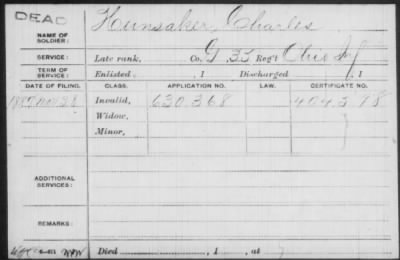 DEAD
NAME OF SOLDIER: Hunsaker, Charles
SERVICE: Late rank, Co. G 35 Reg't Ohio Inf
TERM OF SERVICE: Enlisted , 1 Discharged , 1
DATE OF FILING. CLASS. APPLICATION NO. LAW. CERTIFICATE NO.
1887 Nov 28 Invalid, 630.368 404.398
Widow,
Minor,
ADDITIONAL SERVICES:
REMARKS:
Died , 1 , at